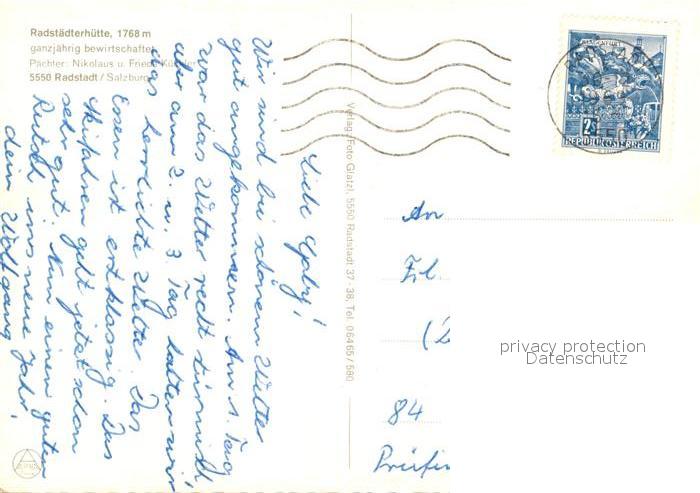 Radstädterhütte, 1768 m
ganzjährig bewirtschaftet
Pächter: Nikolaus u. Friedl
5550 Radstadt / Salzburg
Liebe Gaby!
Wir sind bei schönem Wetter
gut angekommen. Am 1. Tag
war das Wetter recht stürmisch
aber am 2. u. 3. Tag hatten wir
das herrlichste Wetter. Das
Essen ist erstklassig. Das
Skifahren geht jetzt schon
sehr gut. Nun einen guten
Rutsch ins neue Jahr!
dein Wolfgang
Verlag: Foto Glatzl, 5550 Radstadt 37-38, Tel. 06465/580
2 S
REPUBLIK ÖSTERREICH
An
Frl.
84
privacy protection
Datenschutz